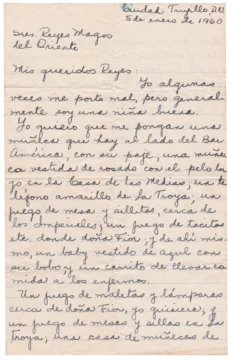 Ciudad Trujillo, R.D.
5 de enero de 1960
Sres. Reyes Magos
del Oriente
Mis queridos Reyes:
Yo algunas
veces me porto mal, pero general
mente soy una niña buena.
Yo quiero que me pongan una
muñeca que hay al lado del Bar
América, con su paje, una muñe
ca vestida de rosado con el pelo la
go en la Casa de las Medias; un te
léfono amarillo de La Troya; un
juego de mesa y sillitas, cerca de
los Imperiales; un juego de tacitas
etc. donde doña Fior; y de ahí mis
mo, un baby vestido de azul con
su bobo; y un carrito de llevar co
mida a los enfermos.
Un juego de maletas y lámparas
cerca de doña Fior, yo quisiera; y
un juego de mesas y sillas en La
Troya; una casa de muñecas de